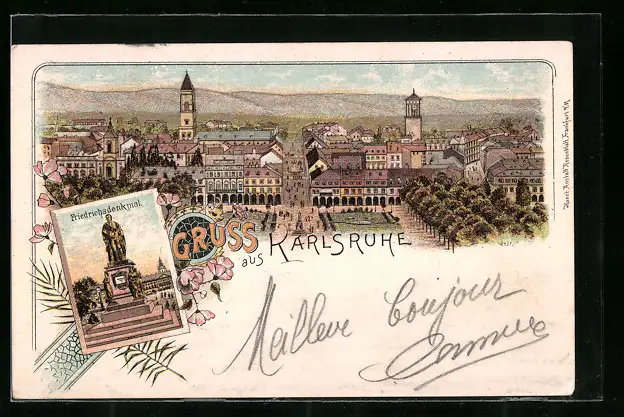 Friedrichsdenkmal.
GRUSS
aus KARLSRUHE
Kunst Anstalt Rosenblatt, Frankfurt a/M.
Meilleur bonjour